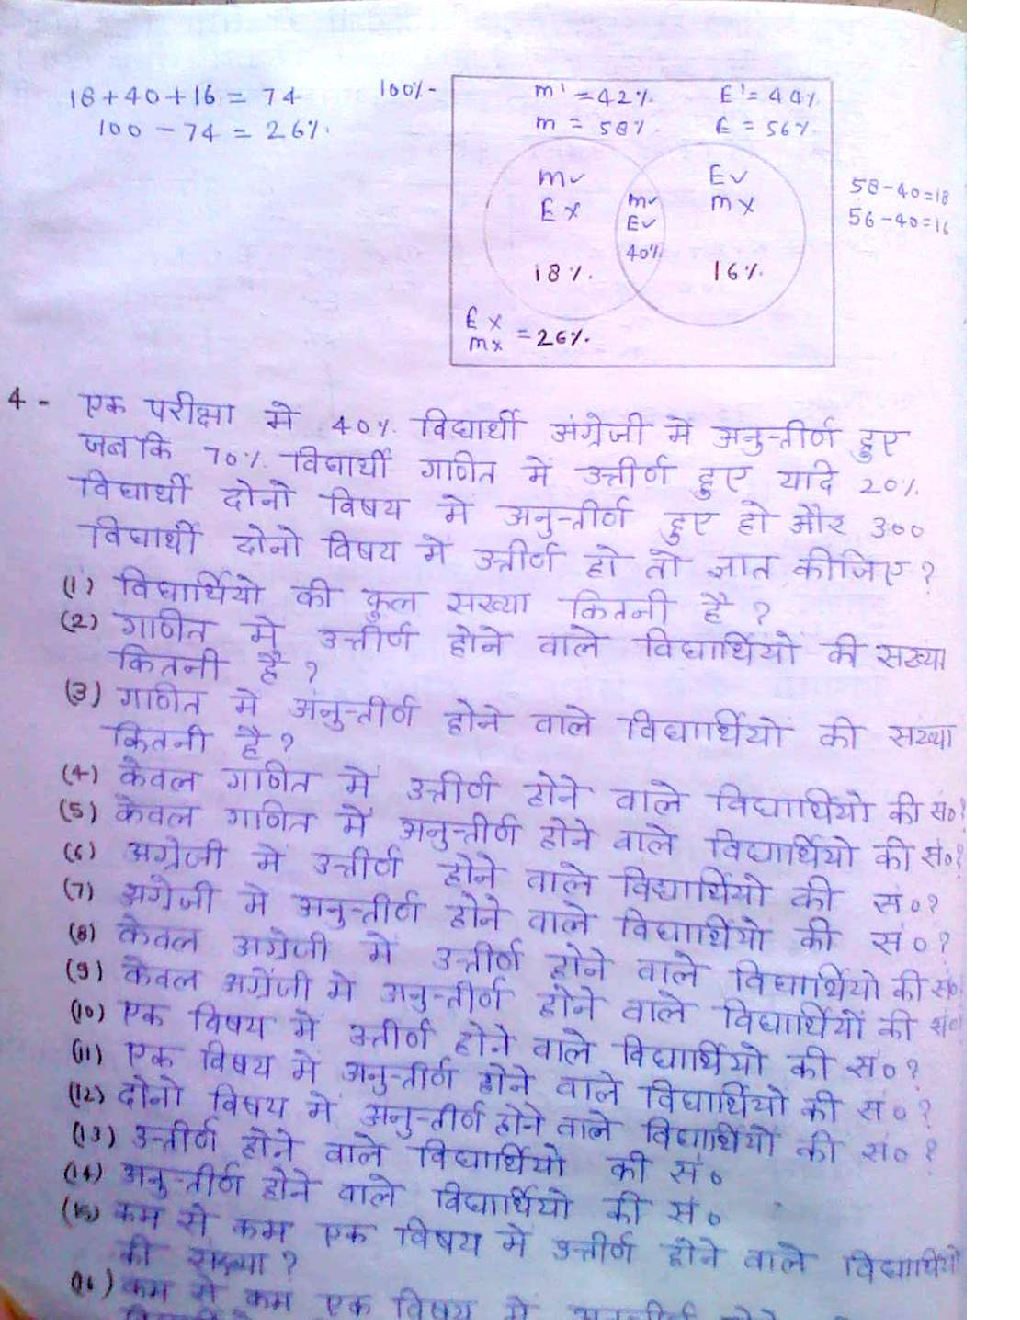 18+40+16 = 74
100 - 74 = 26%.
100%-
m' = 42% E' = 44%
m = 58% E = 56%
m✓
E x
18%.
m✓
E✓
40%
E✓
m x
16%.
E x
m x = 26%.
58-40=18
56-40=16
4 - एक परीक्षा में 40% विद्यार्थी अंग्रेजी में अनुत्तीर्ण हुए
जबकि 70% विद्यार्थी गणित में उत्तीर्ण हुए यदि 20%
विद्यार्थी दोनो विषय में अनुत्तीर्ण हुए हो और 300
विद्यार्थी दोनो विषय में उत्तीर्ण हो तो ज्ञात कीजिए?
(1) विद्यार्थियो की कुल सख्या कितनी है ?
(2) गणित में उत्तीर्ण होने वाले विद्यार्थियों की सख्या
कितनी है ?
(3) गणित में अनुत्तीर्ण होने वाले विद्यार्थियों की संख्या
कितनी है ?
(4) केवल गणित में उत्तीर्ण होने वाले विद्यार्थियो की सं०?
(5) केवल गणित में अनुत्तीर्ण होने वाले विद्यार्थियो की सं०?
(6) अग्रेजी में उत्तीर्ण होने वाले विद्यार्थियो की सं०?
(7) अग्रेजी में अनुत्तीर्ण होने वाले विद्यार्थियो की सं०?
(8) केवल अग्रेजी में उत्तीर्ण होने वाले विद्यार्थियो की सं०
(9) केवल अग्रेंजी में अनुत्तीर्ण होने वाले विद्यार्थियों की सं०
(10) एक विषय में उत्तीर्ण होने वाले विद्यार्थियो की सं०?
(11) एक विषय में अनुत्तीर्ण होने वाले विद्यार्थियो की सं०?
(12) दोनो विषय में अनुत्तीर्ण होने वाले विद्यार्थियों की सं०?
(13) उत्तीर्ण होने वाले विद्यार्थियो की सं०
(14) अनुत्तीर्ण होने वाले विद्यार्थियो की सं०
(15) कम से कम एक विषय में उत्तीर्ण होने वाले विद्यार्थियो
की संख्या ?
(16) कम से कम एक विषय में अनुत्तीर्ण होने